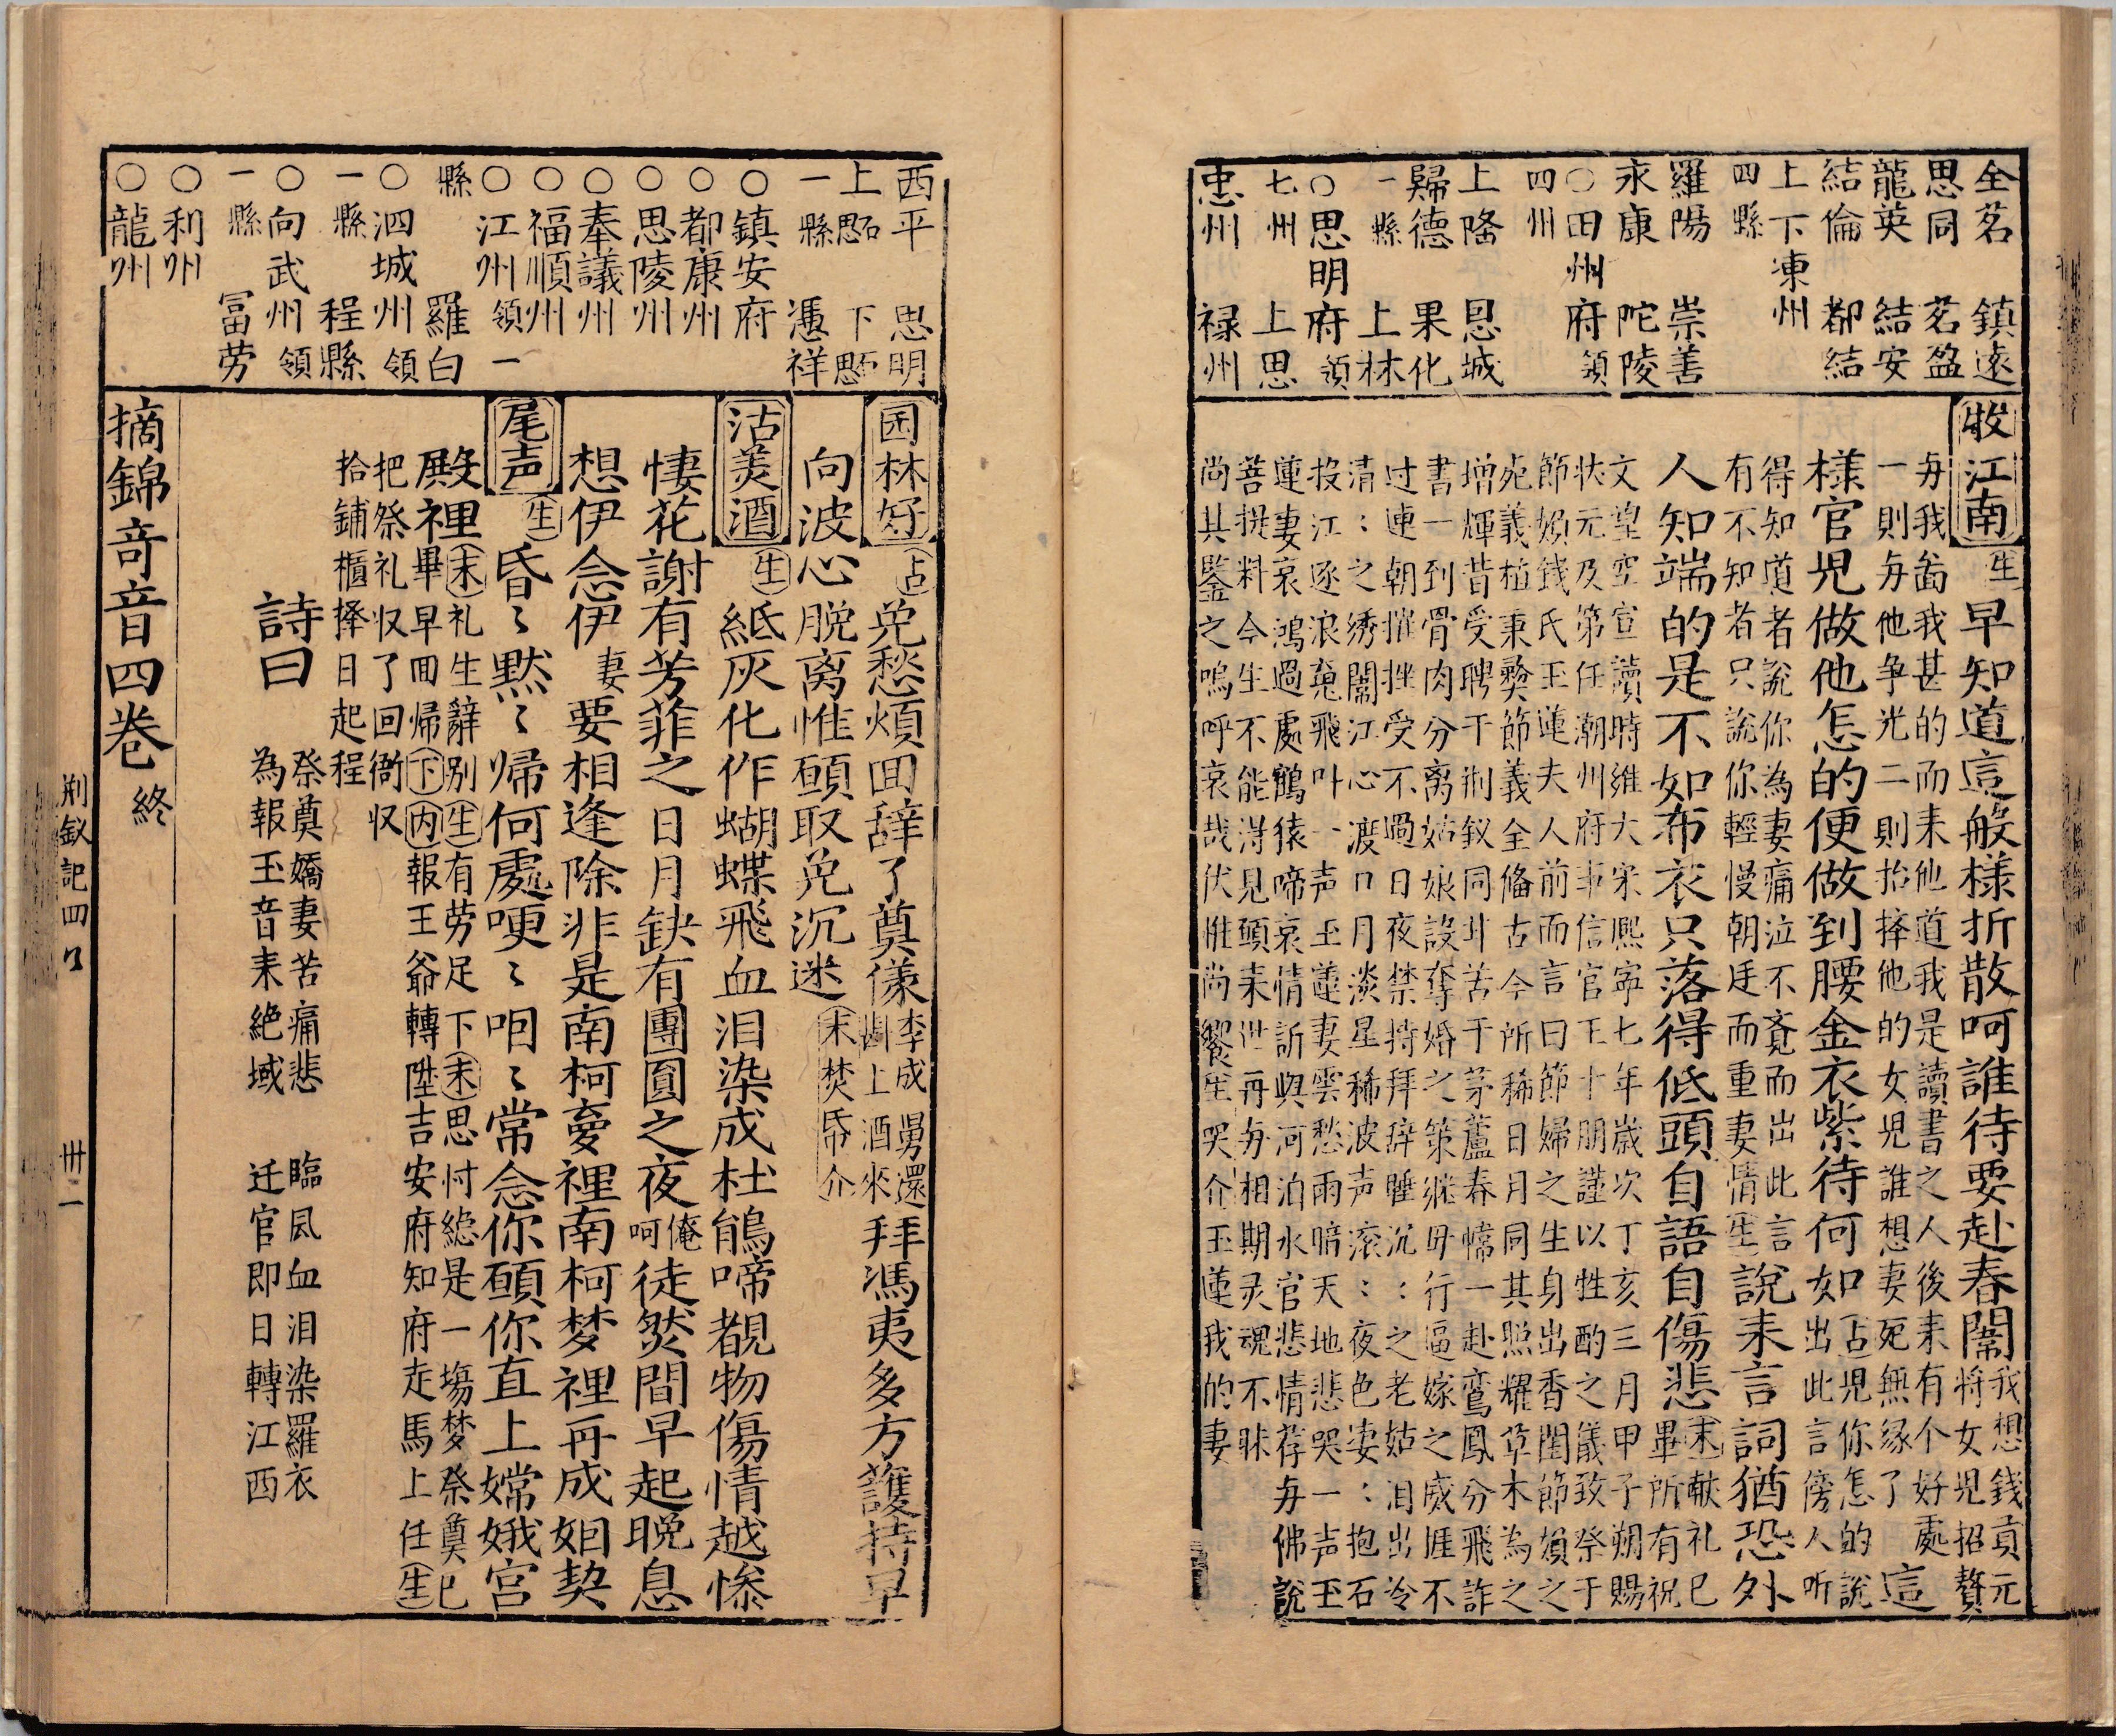 全茗　鎮遠
思同　茗盈
龍英　結安
結倫　都結
上下凍州
四縣
羅陽　崇善
永康　陀陵
〇田州府領
四州
上隆　恩城
歸德　果化
一縣　上林
〇思明府領
七州　上思
忠州　祿州
收江南
生
早知道這般樣折散呵誰待要赴春闈
我想錢貢元
將女兒招贅
毋我畨我甚的而来他道我是讀書之人後来有个好處
一則毋他争光二則抬择他的女兒誰想妻死無縁了
這
様官児做他怎的便做到腰金衣紫待何如
占児你怎的說
出此言傍人听
得知道者說你為妻痛泣不竟而出此言
有不知者只說你輕慢朝廷而重妻情
生
說来言詞猶恐外
人知端的是不如布衣只落得低頭自語自傷悲
末献礼已
畢所有祝
文望空宣讀時維大宋熙寧七年歲次丁亥三月甲子朔賜
状元及第任潮州府事信官王十朋謹以牲酌之儀致祭于
節嬪錢氏玉蓮夫人前而言曰節婦之生身出香閨節嬪之
宛義植秉彝節義全俻古今所稀日月同其照耀草木為之
增輝昔受聘于荆釵同甘苦于茅蘆春幃一赴鸞鳳分飛詐
書一到骨肉分离姑娘設奪婚之策継毋行逼嫁之威逼不
过連朝摧挫受不過日夜禁持拜辞睡沉：之老姑泪出冷
清：之綉闈江心渡口月淡星稀波声滚：夜色凄：抱石
投江逐浪䰟飛叶一声玉蓮妻雲愁雨暗天地悲哭一声玉
蓮妻哀鴻過處鶴猿啼哀情訴與河泊水官悲情荐毋佛說
菩提料今生不能得見頭来世再毋相期灵魂不昧
尚其鑒之嗚呼哀哉伏惟尚饗生哭介玉蓮我的妻
西平　思明
上石西　下石西
一縣　憑祥
〇鎮安府
〇都康州
〇思陵州
〇奉議州
〇福順州
〇江州領一
縣　羅白
〇泗城州領
一縣　程縣
〇向武州領
一縣　冨劳
〇利州
〇龍州
园林好
占
免愁煩囬辞了奠儀
李成舅還
斟上酒來
拜馮夷多方護持早
向波心脱离惟願取免沉迷
末焚帋介
沽美酒
生
紙灰化作蝴蝶飛血泪染成杜鵑啼覩物傷情越慘
悽花謝有芳菲之日月缺有團圓之夜
俺
呵
徒然間早起晚息
想伊念伊
妻
要相逢除非是南柯夢裡南柯梦裡再成姻契
尾声
生
昏〻黙〻帰何處哽〻咽〻常念你願你直上嫦娥宮
殿裡
末礼生辭別生有劳足下末思忖縂是一塲梦祭奠已
畢早囬帰下内報王爺轉陞吉安府知府走馬上任生
把祭礼収了回衙収
拾鋪櫃择日起程
詩曰
祭奠嬌妻苦痛悲　臨風血泪染羅衣
為報玉音来絶域　迁官即日轉江西
摘錦竒音四巻終
荆釵記四卷
卅一